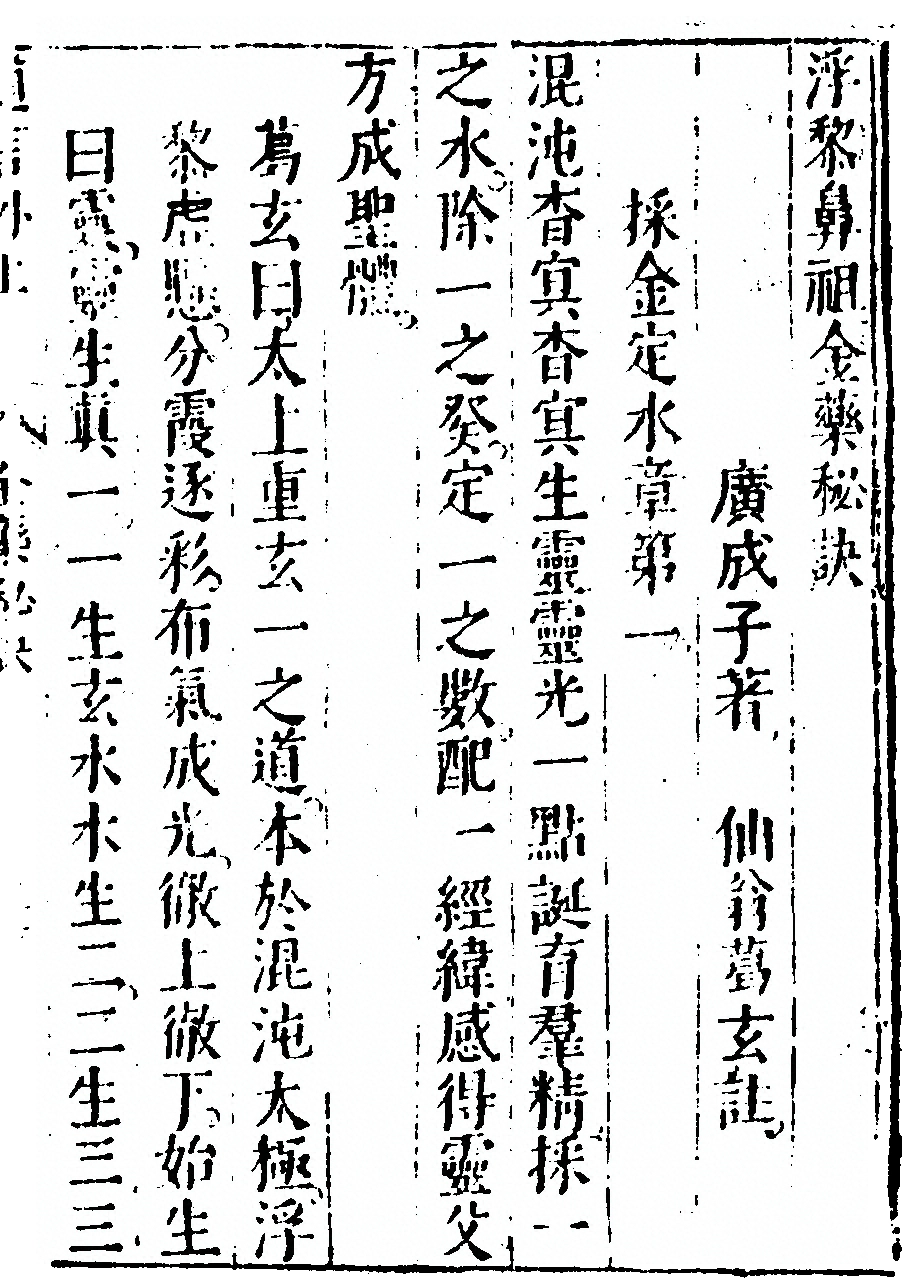 浮黎鼻祖金藥秘訣
廣成子著 仙翁葛玄註
採金定水章第一
混沌杳冥杳冥生靈靈光一點誕育羣精採一
之水除一之癸定一之數配一經緯感得靈父
方成聖體
葛玄曰太上重玄一之道本於混沌太極浮
黎虛懸分霞逐彩布氣成光徹上徹下始生
曰靈靈生真一一生玄水水生二二生三三